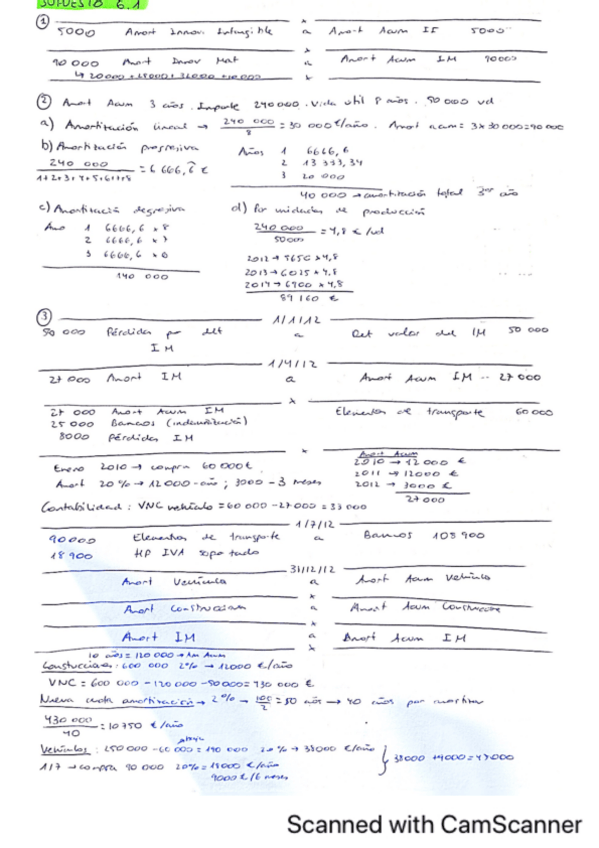 SUPUESTO 6.1
① 5000 Amort Innov. Intangible a Amort Acum II 5000
90 000 Amort Inmov Mat a Amort Acum IM 90000
② Amort Acum 3 años. Importe 240000. Vida util 8 años. 50 000 ud
a) Amortización lineal → 240 000 / 8 = 30 000 €/año. Amort acum = 3x30000=90000
b) Amortización progresiva
240 000 / 1+2+3+4+5+6+7+8 = 6 666,6 €
Años 1 6666,6
2 13 333,34
3 20 000
40 000 → amortización total 3er año
c) Amortización degresiva
Año 1 6666,6 x 8
2 6666,6 x 7
3 6666,6 x 6
140 000
d) Por unidades de producción
240 000 / 50000 = 4,8 €/ud
2012 → 5650 x 4,8
2013 → 6025 x 4,8
2014 → 6900 x 4,8
89 160 €
③ 1/1/12
50 000 Pérdidas por det IM a Det valor del IM 50 000
1/4/12
27 000 Amort IM a Amort Acum IM -- 27 000
27 000 Amort Acum IM a Elementos de transporte 60 000
25 000 Bancos (indemnización)
8000 Pérdidas IM
Enero 2010 → compra 60 000 €
Amort 20% → 12 000 - año ; 3000 - 3 meses
Amort Acum
2010 → 12 000 €
2011 → 12000 €
2012 → 3000 €
27 000
Contabilidad: VNC vehículo = 60 000 - 27 000 = 33 000
1/7/12
90 000 Elementos de transporte a Bancos 108 900
18 900 HP IVA soportado
31/12/12
Amort Vehículo a Amort Acum Vehículo
Amort Construccion a Amort Acum Construccion
Amort IM a Amort Acum IM
10 años = 120 000 → Am Acum
Construcciones: 600 000 2% → 12000 €/año
VNC = 600 000 - 120 000 - 50 000 = 430 000 €
Nueva cuota amortización → 2% → 100/2 = 50 años → 40 años por amortizar
430 000 / 40 = 10 750 €/año
Vehículos: 250 000 - 60 000 = 190 000 20% → 38000 €/año
1/7 → compra 90 000 20% = 18000 €/año
9000 €/6 meses
38000 + 9000 = 47000
Scanned with CamScanner